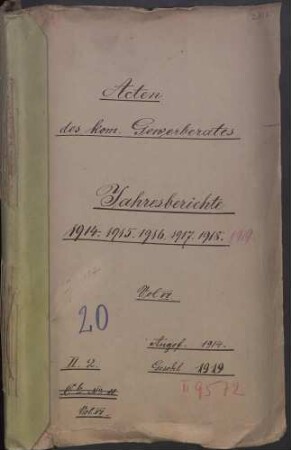 Acten
des kom. Gewerberates
Jahresberichte
1914. 1915. 1916. 1917. 1918. 1919
Vol VI.
20
Angef. 1914.
N. 2. Geschl 1919
II 9572
Vol VI.